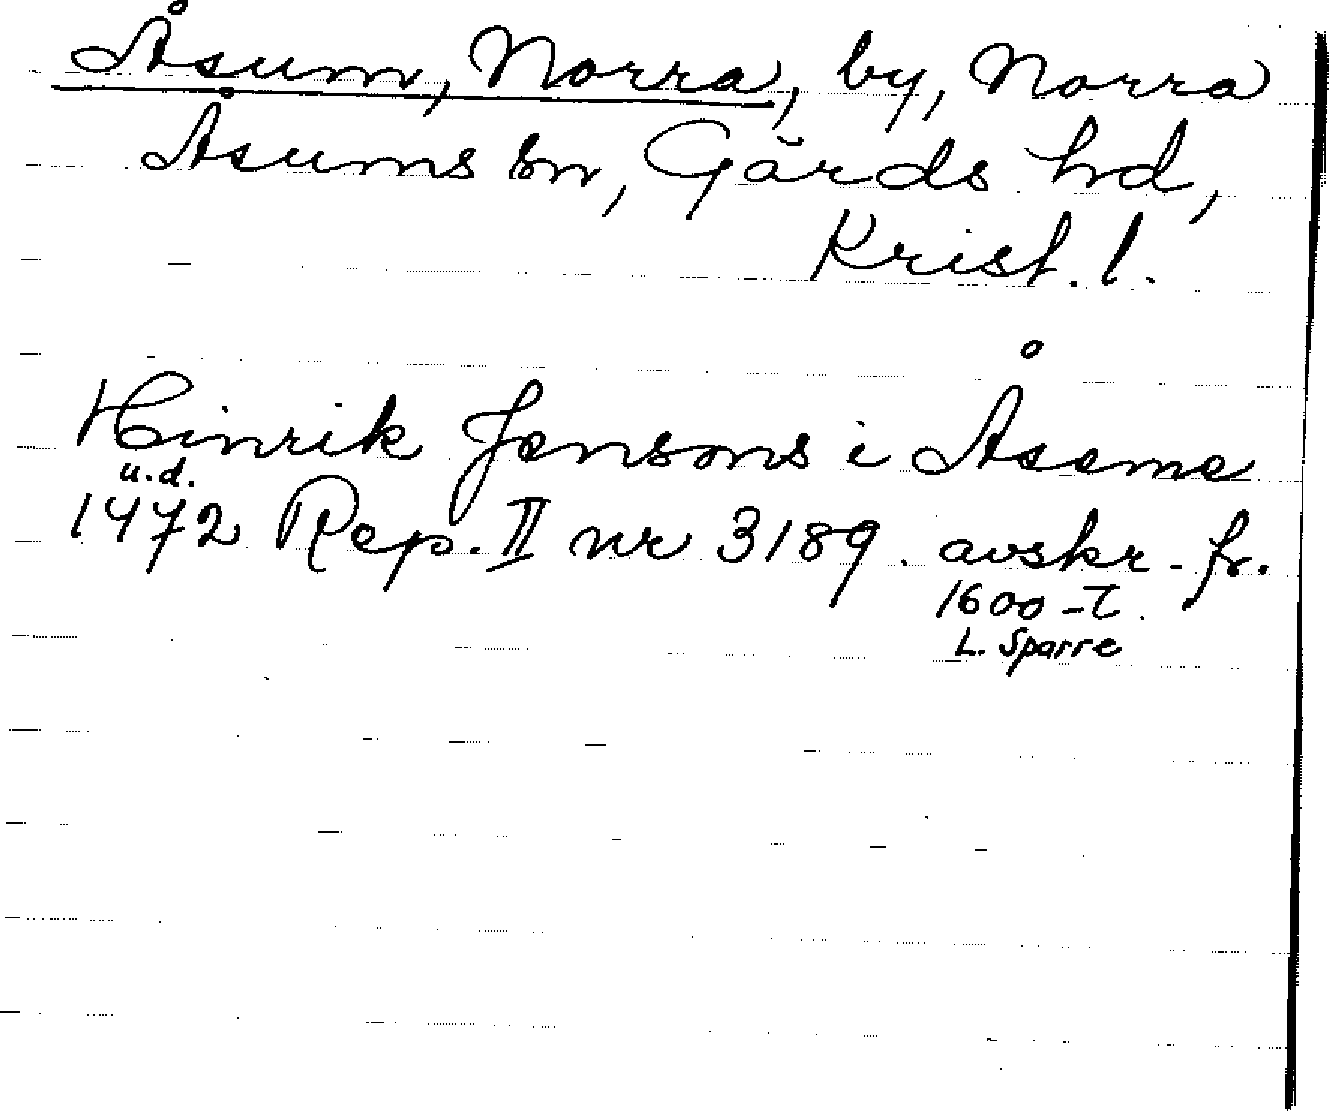 Åsum, Norra, by, Norra
Åsums sn, Gärds hd,
Krist. l.
Hinrik Jensons i Åseme
u.d.
1472 Rep. II nr 3189. avskr. fr.
1600-t.
L. Sparre